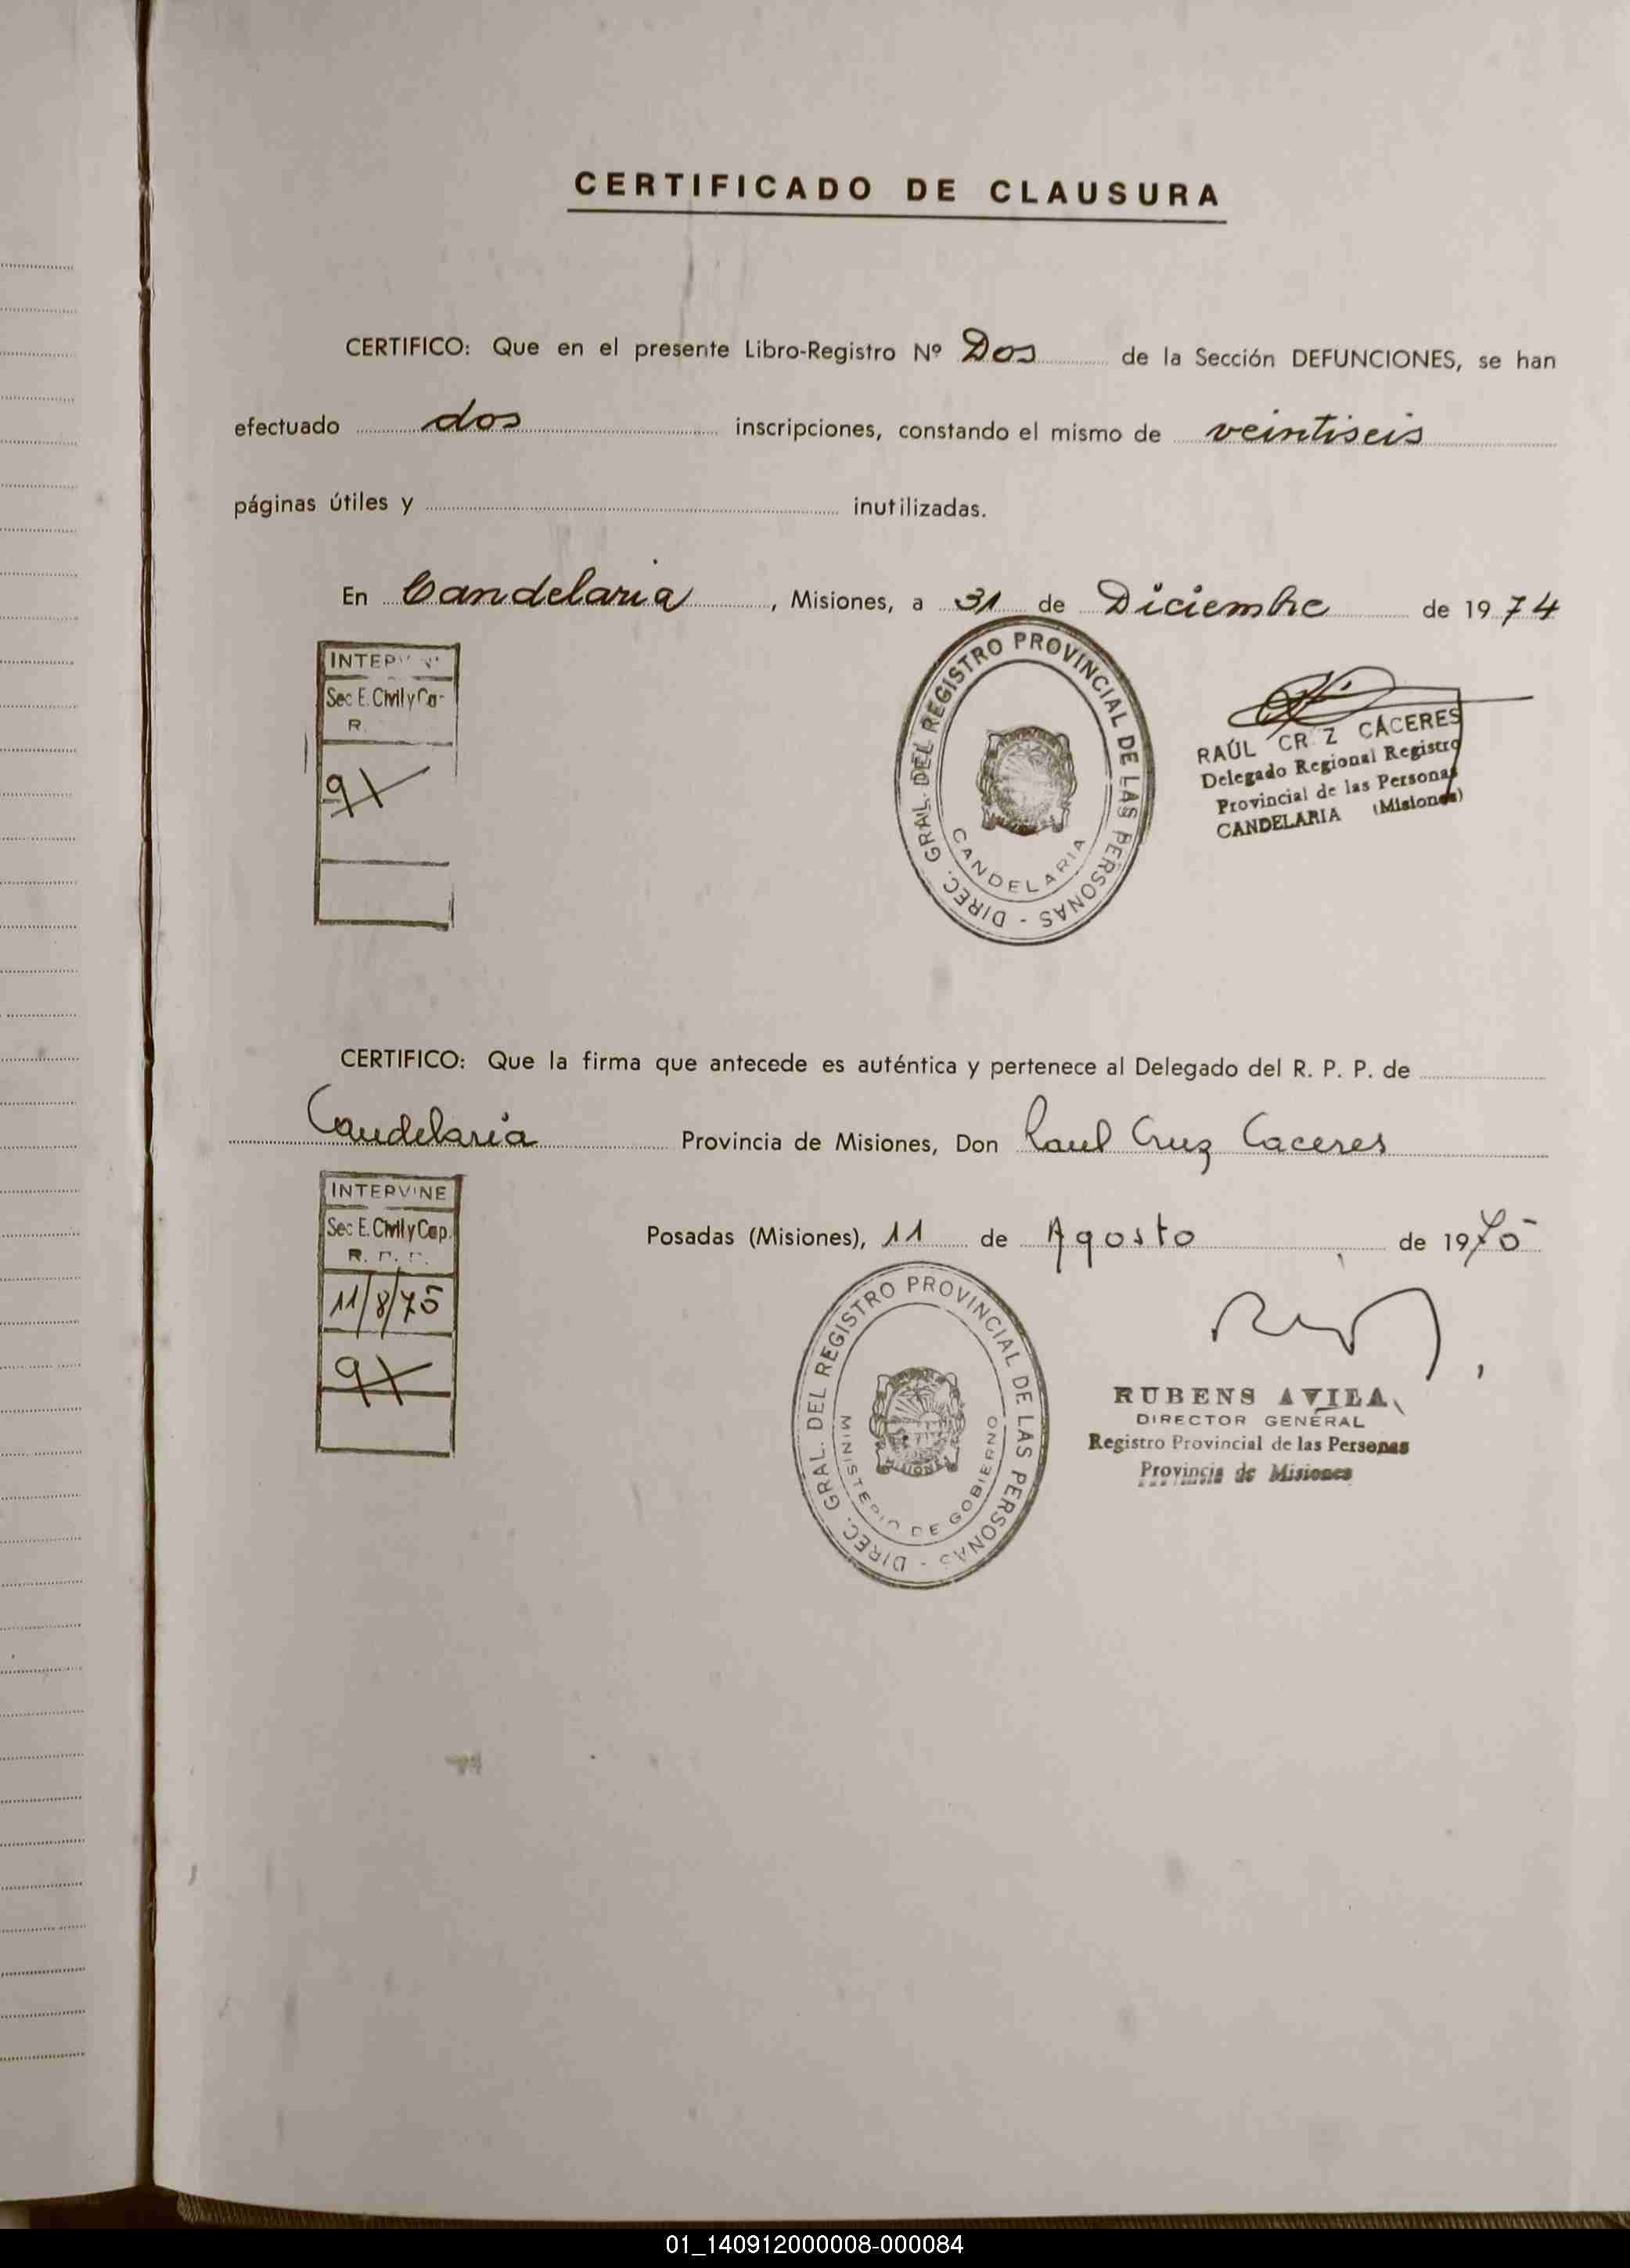 CERTIFICADO DE CLAUSURA
CERTIFICO: Que en el presente Libro-Registro Nº Dos de la Sección DEFUNCIONES, se han
efectuado dos inscripciones, constando el mismo de veintiseis
páginas útiles y inutilizadas.
En Candelaria, Misiones, a 31 de Diciembre de 1974
Sec E. Civil y Ca-
R.
DIREC. GRAL. DEL REGISTRO PROVINCIAL DE LAS PERSONAS -
CANDELARIA
RAÚL CR Z CÁCERES
Delegado Regional Registro
Provincial de las Personas
CANDELARIA (Misiones)
CERTIFICO: Que la firma que antecede es auténtica y pertenece al Delegado del R. P. P. de
Candelaria Provincia de Misiones, Don Raul Cruz Caceres
INTERVINE
Sec E. Civil y Cap.
R. P. P.
11/8/75
Posadas (Misiones), 11 de Agosto de 1975
DIREC. GRAL. DEL REGISTRO PROVINCIAL DE LAS PERSONAS -
MINISTERIO DE GOBIERNO
MISIONES
RUBENS AVILA
DIRECTOR GENERAL
Registro Provincial de las Personas
Provincia de Misiones
01_140912000008-000084